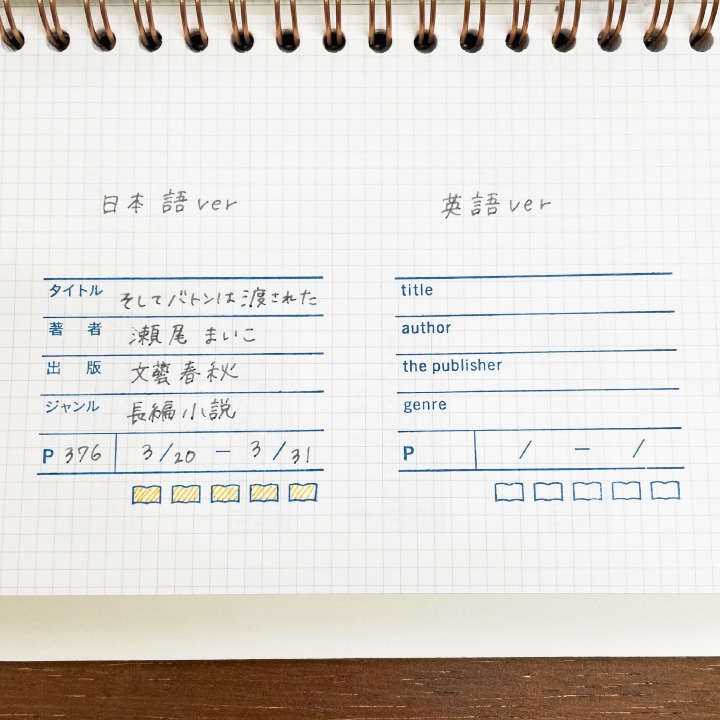 日本語ver
タイトル そしてバトンは渡された
著者 瀬尾まいこ
出版 文藝春秋
ジャンル 長編小説
P 376 3/20 - 3/31
英語ver
title
author
the publisher
genre
P / - /